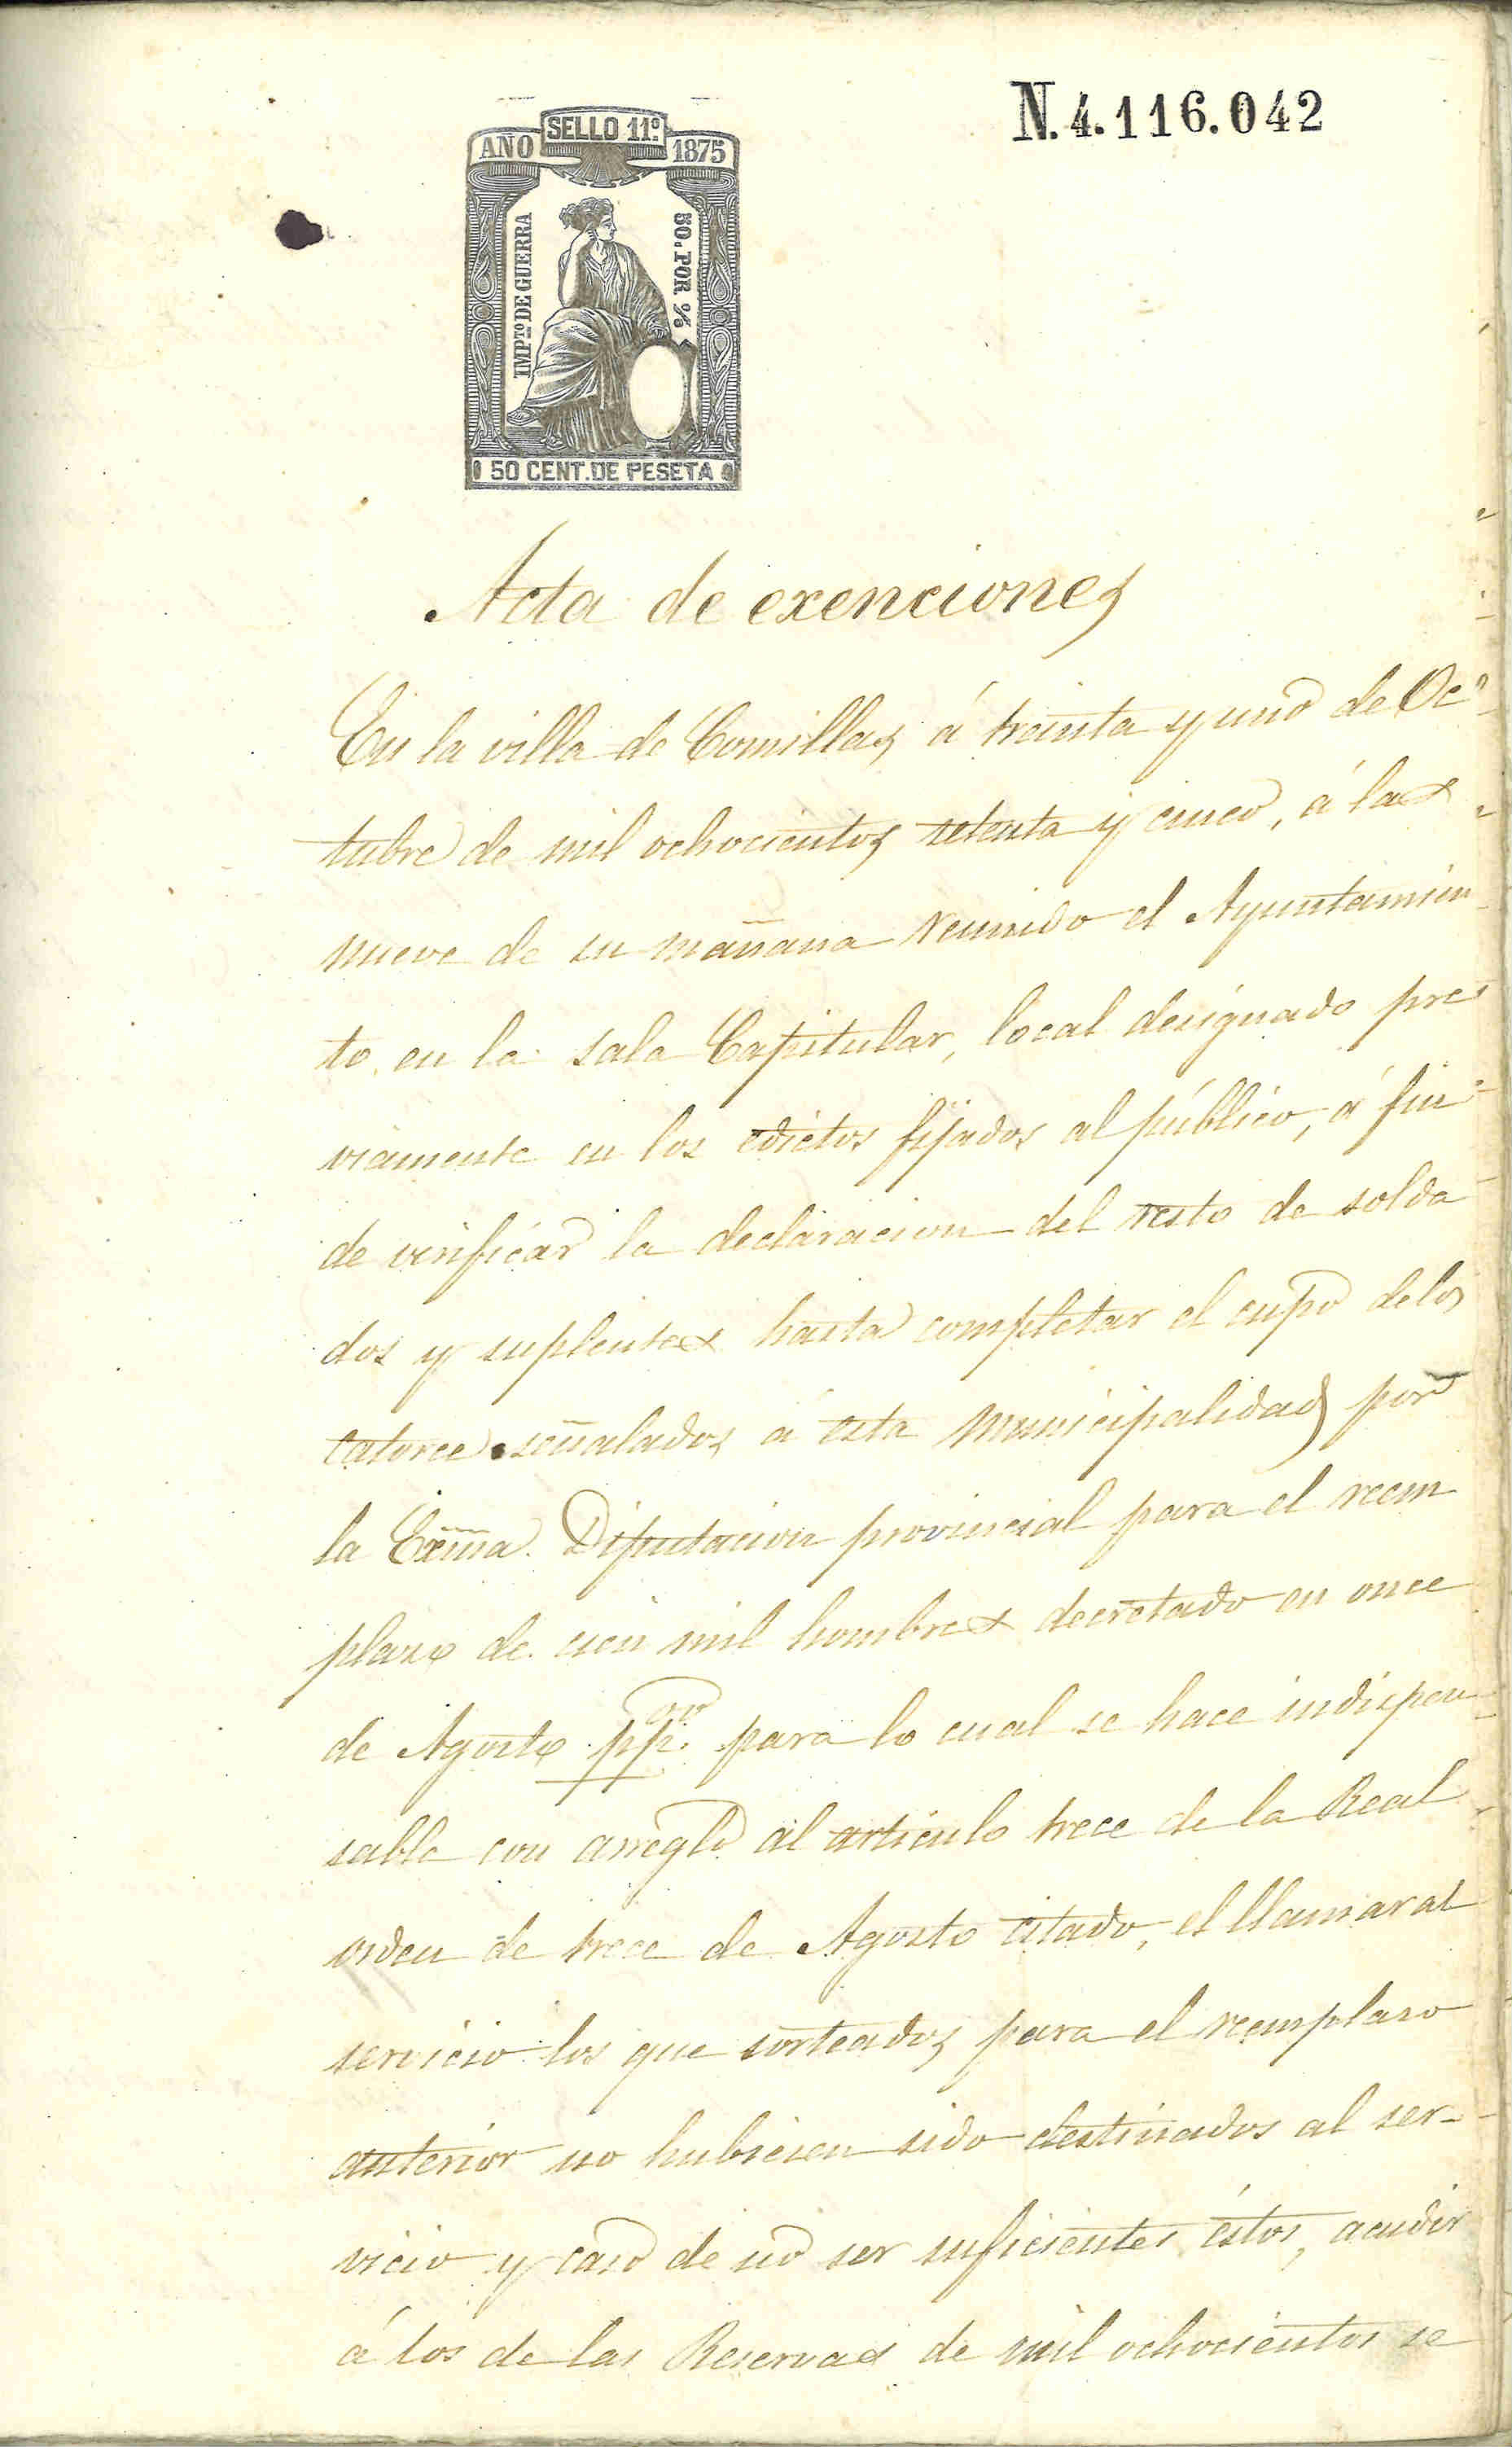 N. 4.116.042
SELLO 11.º
AÑO 1875
IMP.TO DE GUERRA
50. POR %
50 CENT. DE PESETA
Acta de exenciones
En la villa de Comillas á treinta y uno de Oc-
tubre de mil ochocientos setenta y cinco, á las
nueve de su mañana reunido el Ayuntamien
to, en la sala Capitular, local designado pre
viamente en los edictos fijados al público, á fin
de verificar la declaracion del resto de solda
dos y suplentes hasta completar el cupo de los
catorce señalados á esta Municipalidad por
la Exma. Diputacion provincial para el reem
plazo de cien mil hombres decretado en once
de Agosto pp.do para lo cual se hace indispen
sable con arreglo al artículo trece de la Real
orden de trece de Agosto citado, el llamar al
servicio los que sorteados para el reemplazo
anterior no hubiesen sido destinados al ser-
vicio y caso de no ser suficientes éstos, acudir
á los de las Reservas de mil ochocientos se